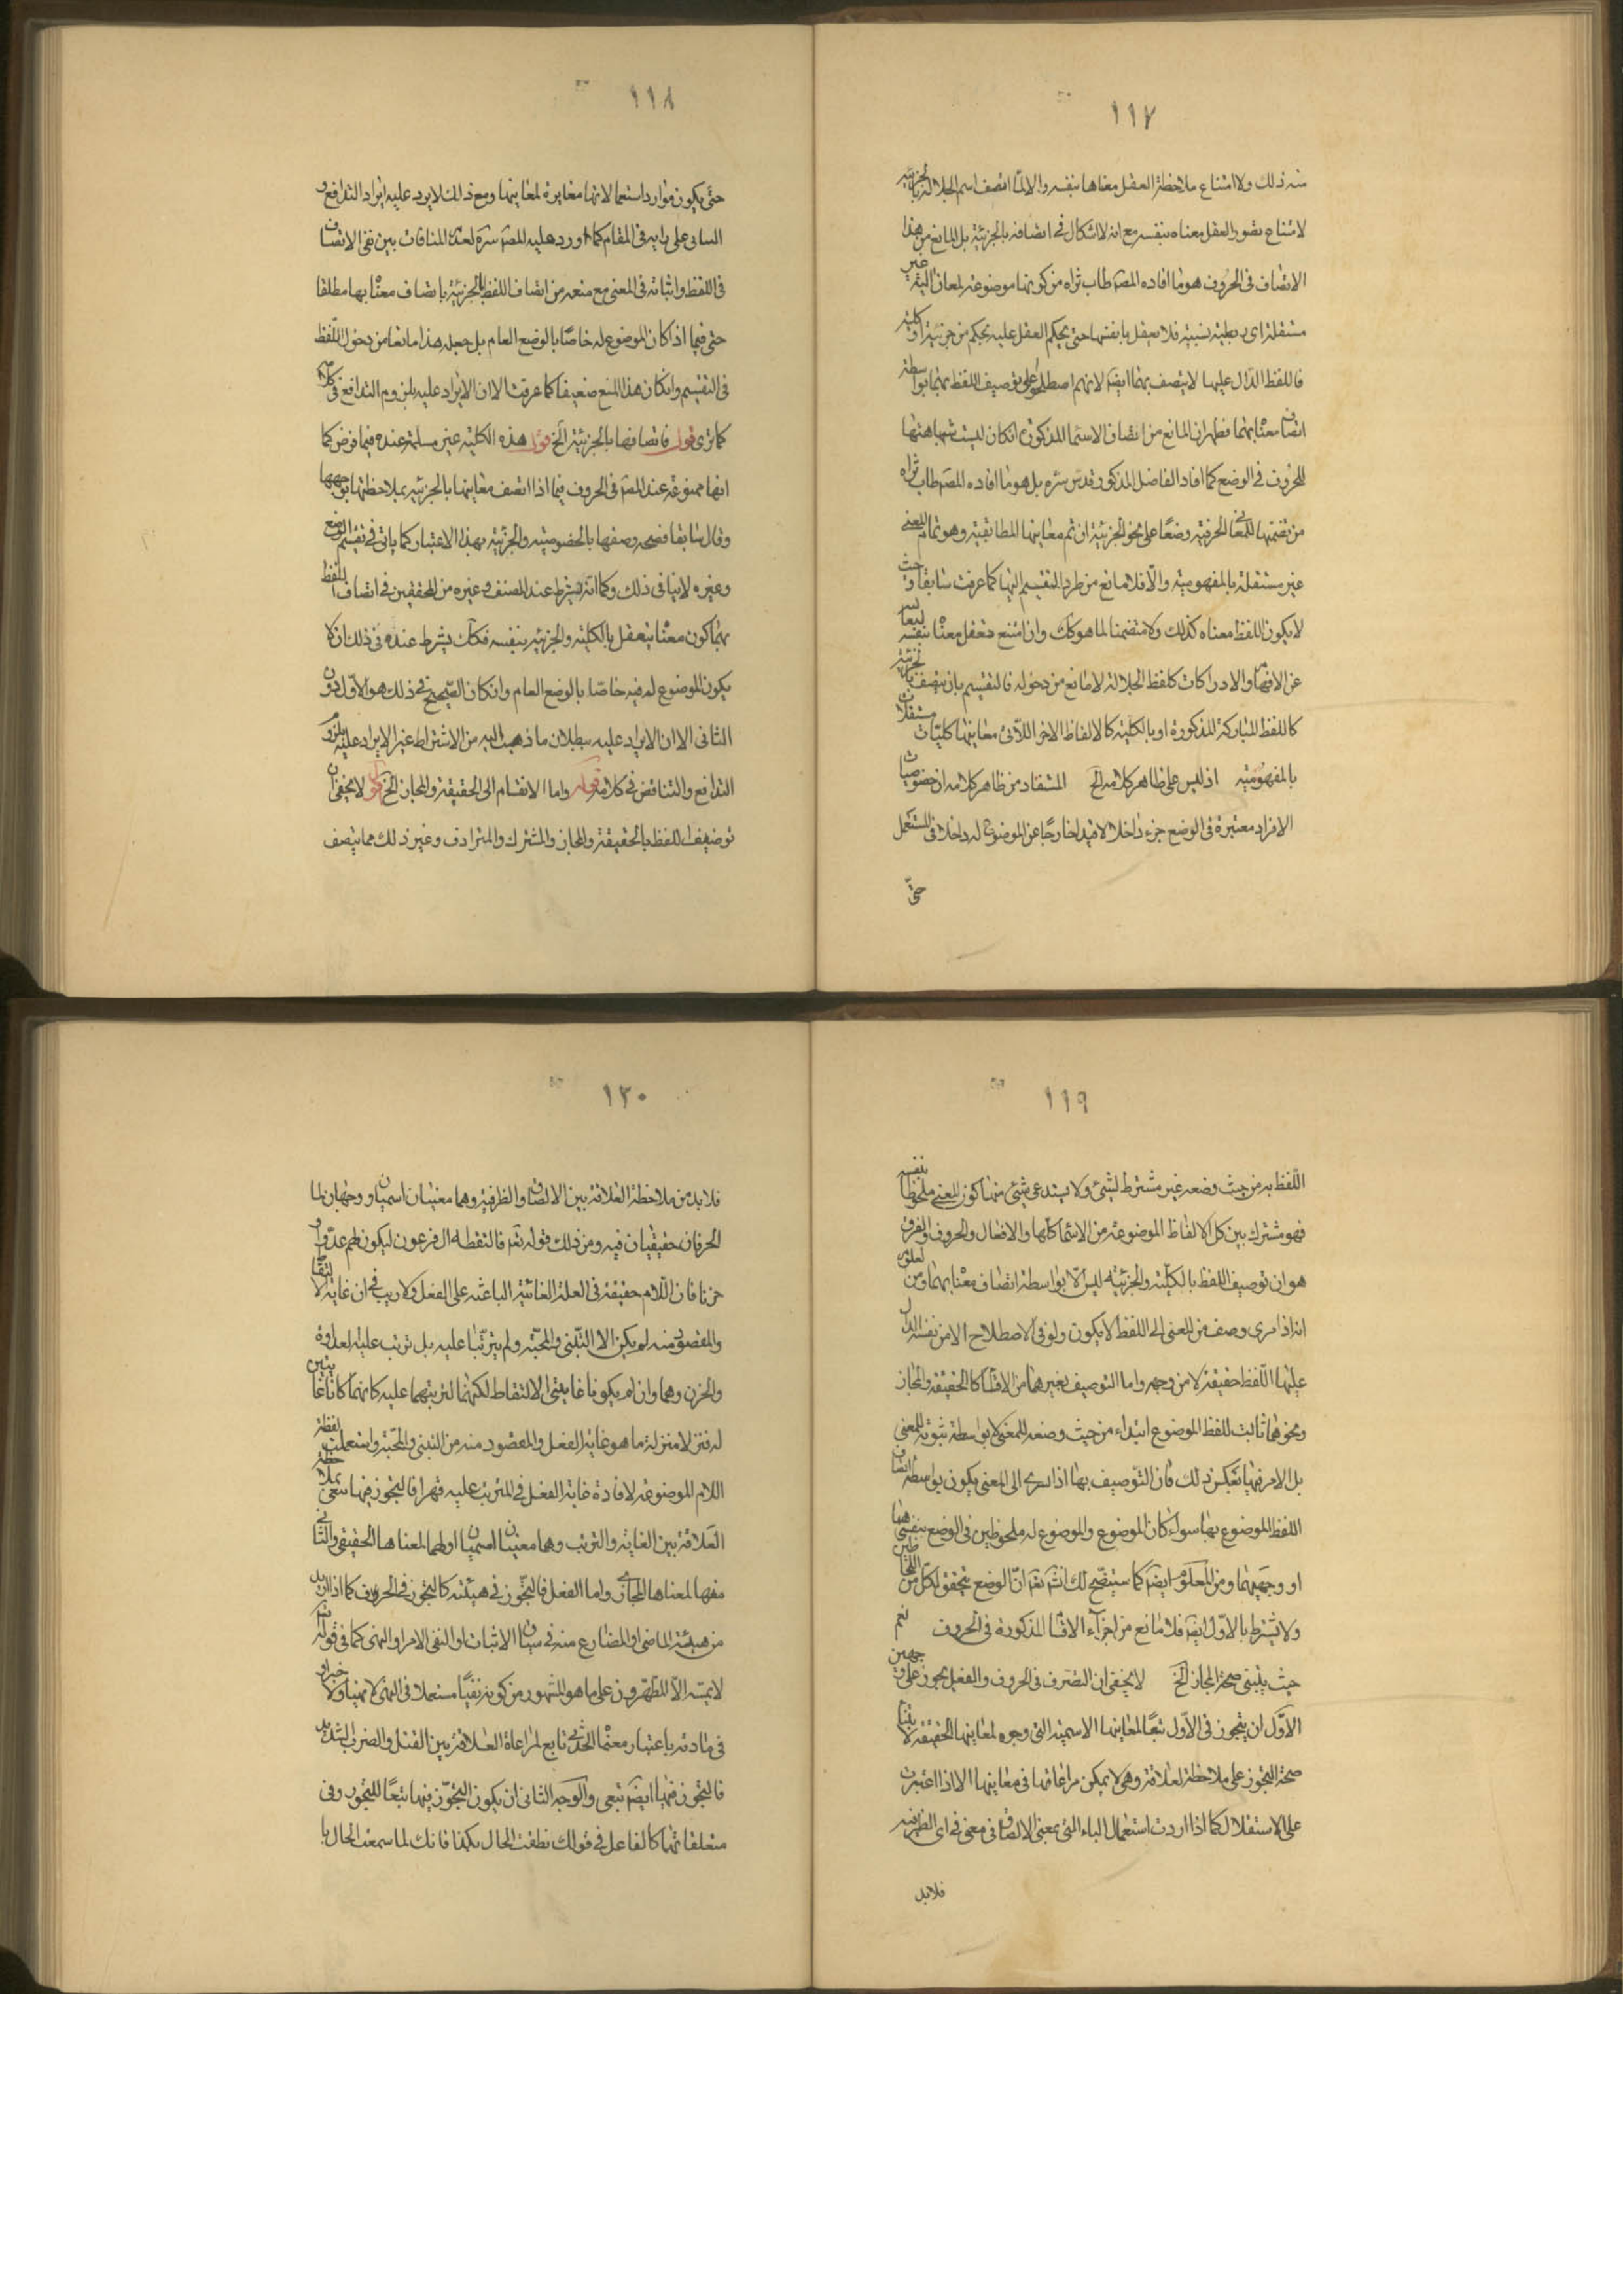 ١١٧
منه ذلك ولا امتناع ملاحظة العقل معناها بنفسه والا لما اتصف اسم الجلالة بالجزئية
لامتناع تصور العقل معناه بنفسه مع انه لا اشكال في اتصافه بالجزئية بل المانع من هذا
الاتصاف في الحروف هو ما افاده المصـ طاب ثراه من كونها موضوعة لمعان آلية غير
مستقلة اى ربطية نسبية فلا تعقل بانفسها حتى يحكم العقل عليه بحكم من جزئية او كلية
فاللفظ الدال عليها لا يتصف بهما ايضـ لانهم اصطلحوا على توصيف اللفظ بهما بواسطة
اتصاف معناه بهما فظهر ان المانع من اتصاف الاسماء المذكورة انكان ليست شباهتها
للحروف في الوضع كما افاد الفاضل المذكور قدس سره بل هو ما افاده المصـ طاب ثراه
من تضمنها للمعنى الحرفية وضعا على نحو الجزئية ان تم معاينها المطابقية وهو تمام المعنى
غير مستقلة بالمفهومية والا فلا مانع من طرد التقسيم اليها كما عرفت سابقا وحيث
لا يكون اللفظ معناه كذلك ولا متضمنا لما هو كك وان امتنع تعقل معناه بنفسه
عن الافهام والادراكات كلفظ الجلالة لا مانع من دخوله في التقسيم بان يتصف بالجزئية
كاللفظ المباركة المذكورة او بالكلية كالالفاظ الاخر اللاتى معاينها كليات مستقلات
بالمفهومية اذ ليس على ظاهر كلامه الخ المستفاد من ظاهر كلامه ان خصوصيات
الافراد معتبرة في الوضع جزء داخلا لا قيدا خارجا عن الموضوع له داخلا في المستعمل
حتى
١١٨
حتى يكون موارد استعمالاتها مغايرة لمعاينها ومع ذلك لا يرد عليه ايراد التدافع و
التنافى على رايه في المقام كما اورده عليه المصـ سره لعدم المنافات بين نفى الاتصاف
في اللفظ واثباته في المعنى مع منعه من اتصاف اللفظ بالجزئية باتصاف معناه بها مطلقا
حتى فيما اذا كان الموضوع له خاصا بالوضع العام بل جعله هذا مانعا من دخول اللفظ
في التقسيم وانكان هذا المنع ضعيفا كما عرفت الا ان الايراد عليه بلزوم التدافع في كلامه
كما ترى قوله فاتصافها بالجزئية الخ قول هذه الكلية غير مسلمة عنده فيما فرض كما
انها ممنوعة عند المصـ في الحروف فيما اذا اتصف معاينها بالجزئية بملاحظتها بوجهها
وقال سابقا فصح وصفها بالخصوصية والجزئية بهذا الاعتبار كما ياتى في تقسيم الوضع
وغيره لا ينافى ذلك وكما انه يشترط عند المصنف وغيره من المحققين في اتصاف اللفظ
بهما كون معناه يتعقل بالكلية والجزئية بنفسه فكك يشترط عنده في ذلك ان لا
يكون الموضوع له فيه خاصا بالوضع العام وانكان الصحيح في ذلك هو الاول دون
الثانى الا ان الايراد عليه ببطلان ما ذهب اليه من الاشتراط غير الايراد عليه بلزوم
التدافع والتناقض في كلامه قوله واما الانقسام الى الحقيقة والمجاز الخ قول لا يخفى ان
توصيف اللفظ بالحقيقة والمجاز والمشترك والمترادف وغير ذلك مما يتصف
١١٩
اللفظ به من حيث وضعه غير مشترط لشئ ولا يستدعى شئ منها كون المعنى ملحوظا بنفسه
فهو مشترك بين كل الالفاظ الموضوعة من الاسماء كلها والافعال والحروف والفرق
هو ان توصيف اللفظ بالكلية والجزئية ليس الا بواسطة اتصاف معناه بهما ومن المعلوم
انه اذا سرى وصف من المعنى الى اللفظ لا يكون ولو في الاصطلاح الا من نفسه الدال
عليها اللفظ حقيقة لا من وجهه واما التوصيف بغيرهما من الاقسام كالحقيقة والمجاز
ونحوهما ثابت للفظ الموضوع ابتداء من حيث وضعه للمعنى لا بواسطة ثبوته للمعنى
بل الامر فيها بعكس ذلك فان التوصيف بها اذا سرى الى المعنى يكون بواسطة اتصاف
اللفظ الموضوع بها سواء كان الموضوع والموضوع له ملحوظين في الوضع بنفسهما
او وجهيهما ومن المعلوم ايضـ كما ستيضح لك انشـ تعـ ان الوضع يتحقق لكل من اللحاظين
ولا يشترط بالاول ايضـ فلا مانع من اجراء الاقسام المذكورة في الحروف نعم
حيث يبتنى صحة المجاز الخ لا يخفى ان التصرف في الحروف والفعل يجوز على وجهين
الاول ان يتجوز في الاول تبعا لمعاينها الاسمية التى وجوه لمعاينها الحقيقة لابتناء
صحة التجوز على ملاحظة لعلاقة وهى لا يمكن مراعاتها في معاينها الا اذا اعتبرت
على الاستقلال كما اذا اردت استعمال الباء التى بمعنى الالصاق في معنى في اى الظرفية
فلابد
١٢٠
فلا بد من ملاحظة العلاقة بين الالصاق والظرفية وهما معنيان اسميان ووجهان لما
الحرفان حقيقيان فيه ومن ذلك قوله تعـ فالتقطه ال فرعون ليكون لهم عدوا و
حزنا فان اللام حقيقة في العلة الغائية الباعثة على الفعل ولا ريب في ان غاية الالتقاط
والمقصود منه لم يكن الا التبنى والمحبة ولم يترتبا عليه بل ترتب عليه العداوة
والحزن وهما وان لم يكونا غايتى الالتقاط لكنهما لترتبهما عليه كانهما كانا غايتين
له فنزلا منزلة ما هو غاية الفعل والمقصود منه من التبنى والمحبة واستعملت لفظة
اللام الموضوعة لافادة غاية الفعل في المترتب عليه قهرا فالتجوز فيها تبعى بملاحظة
العلاقة بين الغاية والترتب وهما معنيان اسميان اولهما لمعناها الحقيقى والثانى
منهما لمعناها المجازى واما الفعل فالتجوز في هيئته كالتجوز في الحروف كما اذا اريد
من هيئة الماضى او المضارع منه في سياق الاثبات او النفى الامر او النهى كما في قوله تعـ
لا يمسه الا المطهرون على ما هو المشهور من كونه نفيا مستعملا في النهى لا نهيا ولا خبرا و
في مادته باعتبار معناها الحدثى تابع لمراعاة العلاقة بين القتل والضرب الشديد
فالتجوز فيها ايضـ تبعى والوجه الثانى ان يكون التجوز فيها تبعا للتجوز وفى
متعلقاتها كالفاعل في قولك نطقت الحال بكذا فانك لما سمعت الحال با